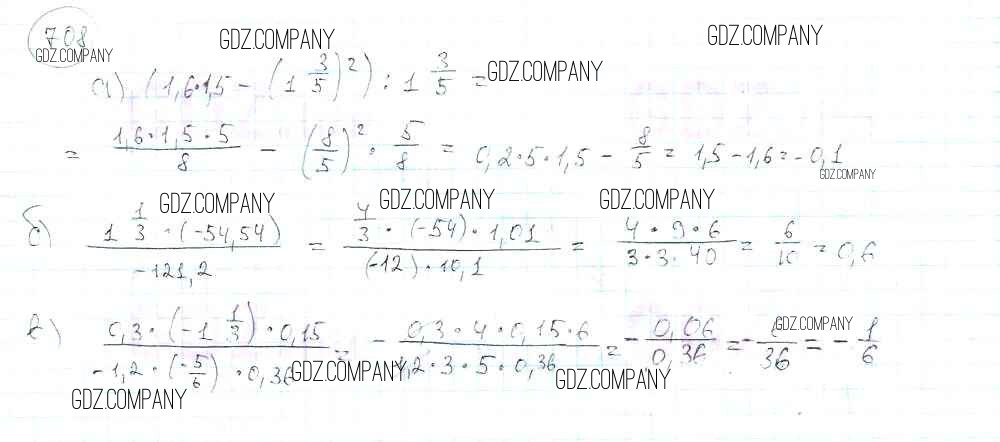 708
GDZ.COMPANY
GDZ.COMPANY
GDZ.COMPANY
GDZ.COMPANY
а) (1,6·1,5 − (1 3/5)²) : 1 3/5 =
= 1,6·1,5·5/8 − (8/5)² · 5/8 = 0,2·5·1,5 − 8/5 = 1,5−1,6 = −0,1
GDZ.COMPANY
GDZ.COMPANY
GDZ.COMPANY
GDZ.COMPANY
б) 1 1/3 · (−54,54) / −121,2 = 4/3 · (−54) · 1,01 / (−12) · 10,1 = 4·9·6 / 3·3·40 = 6/10 = 0,6
GDZ.COMPANY
в) 0,3 · (−1 1/3) · 0,15 / −1,2 · (−5/6) · 0,36 = − 0,3·4·0,15·6 / 1,2·3·5·0,36 = − 0,06/0,36 = − /36 = − 1/6
GDZ.COMPANY
GDZ.COMPANY
GDZ.COMPANY